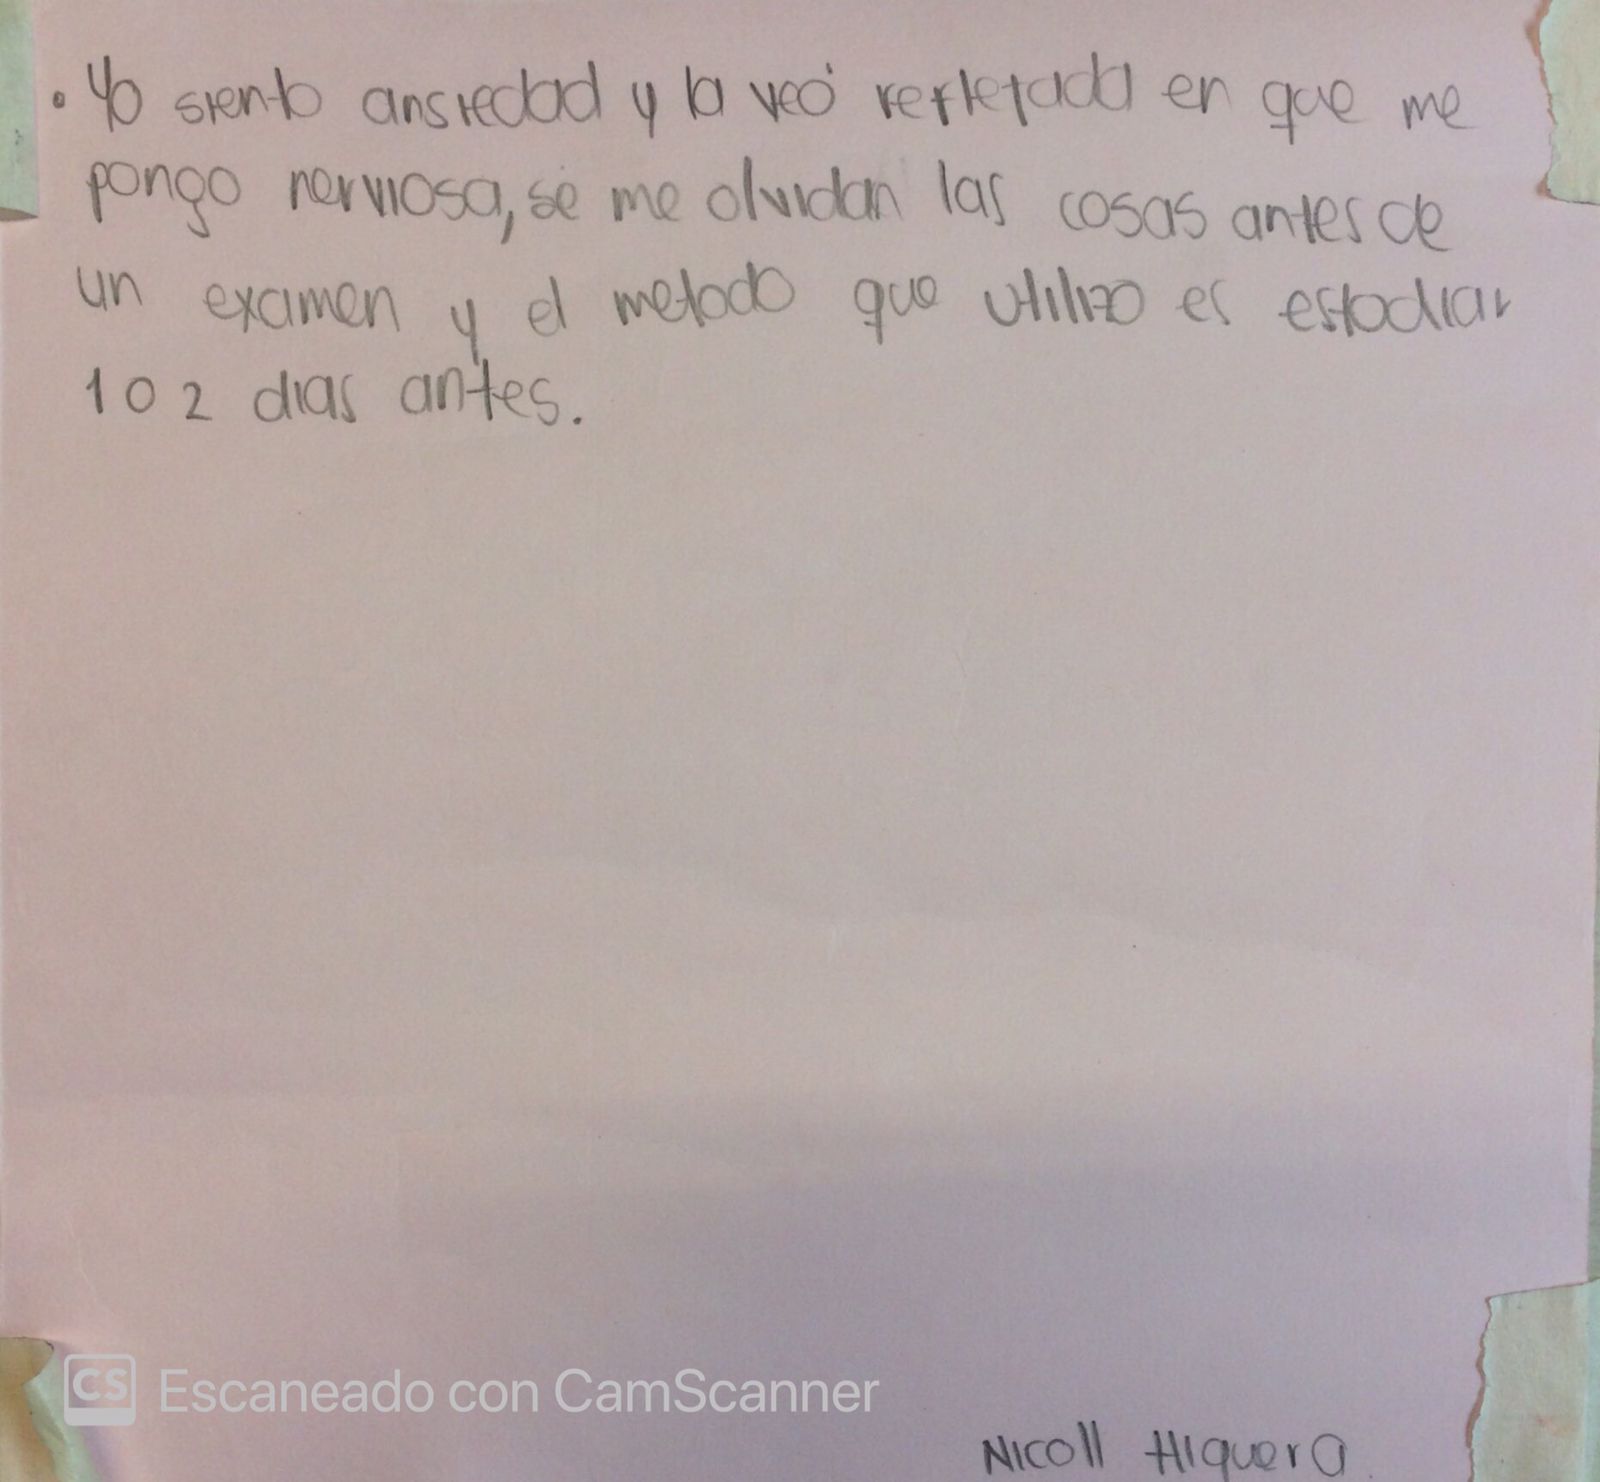 • Yo siento ansiedad y la veo refletada en que me
pongo nerviosa, se me olvidan las cosas antes de
un examen y el metodo que utilizo es estudiar
1 o 2 dias antes.
CS Escaneado con CamScanner
Nicoll Higuera